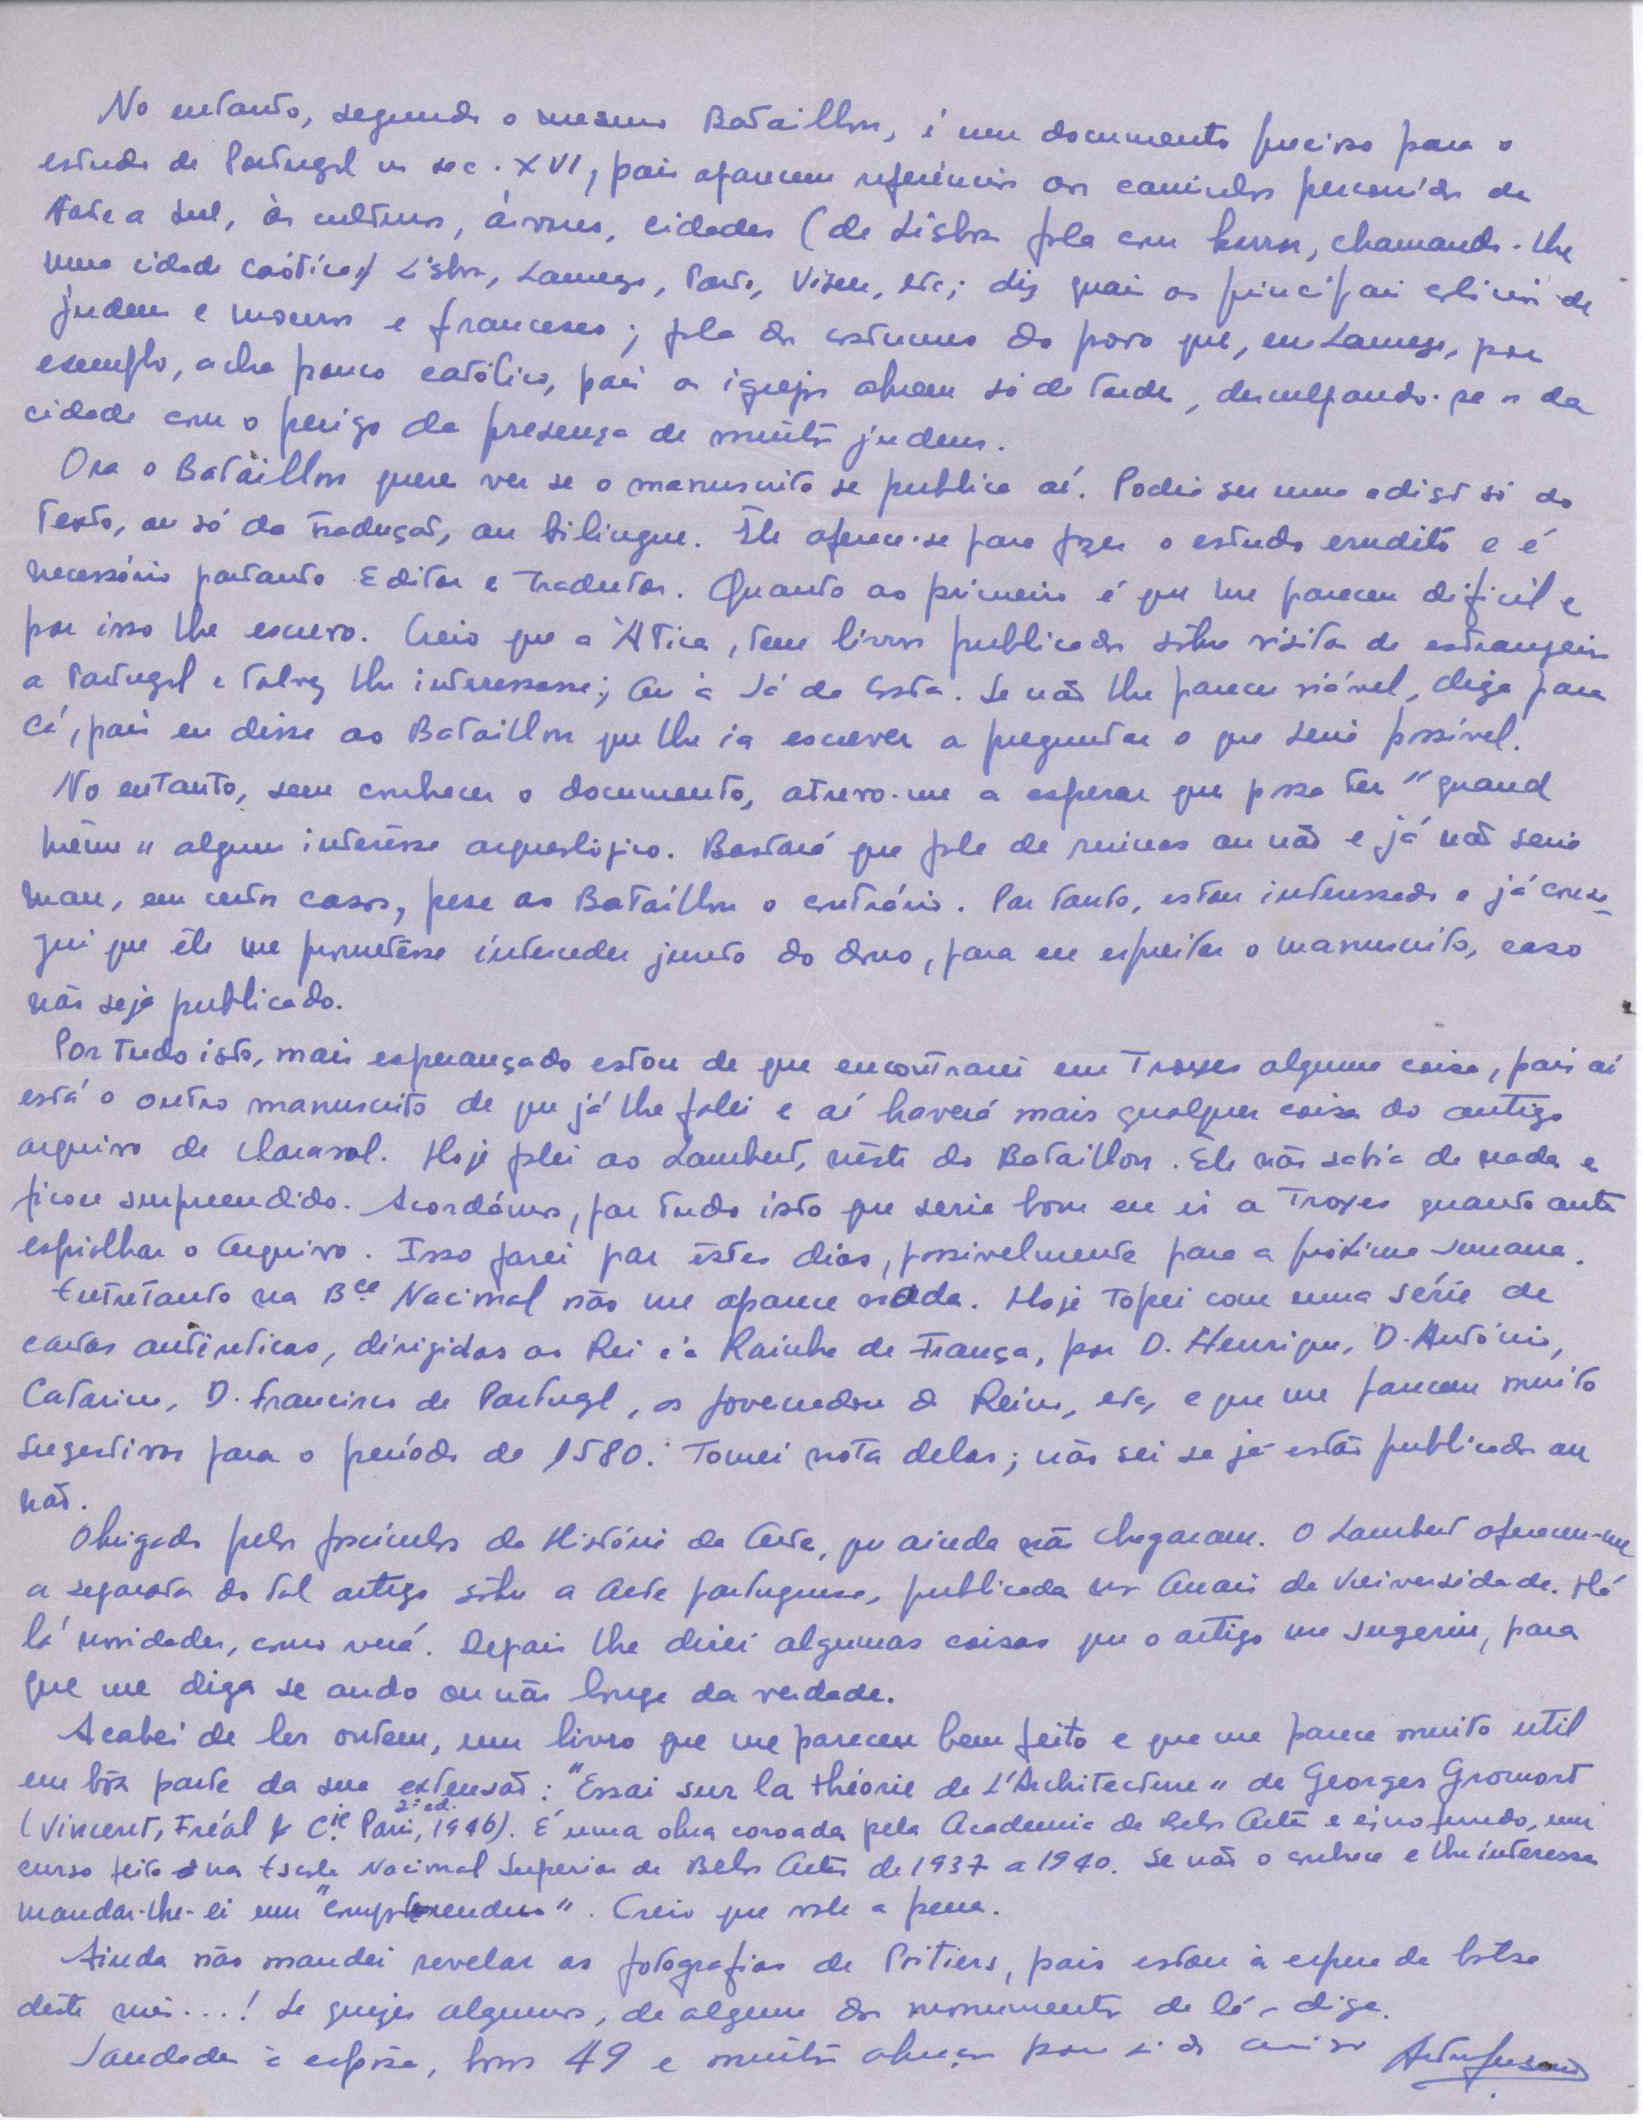 No entanto, segundo o mesmo Bataillon, é um documento precioso para o
estudo de Portugal no sec. XVI, pois aparecem referências aos caminhos percorridos de
Norte a Sul, às culturas, árvores, cidades (de Lisboa fala com horror, chamando-lhe
uma cidade caótica) Lisboa, Lamego, Porto, Viseu, etc; diz quais os principais de
judeus e mouros e franceses; fala dos costumes do povo que, em Lamego, por
exemplo, acha pouco católico, pois as igrejas abrem só de tarde, desculpando-se os da
cidade com o perigo da presença de muitos judeus.
Ora o Bataillon quere ver se o manuscrito se publica aí. Podia ser uma edição só do
texto, ou só da tradução, ou bilingue. Êle oferece-se para fazer o estudo erudito e é
necessário portanto Editor e Tradutor. Quanto ao primeiro é que me pareceu dificil e
por isso lhe escrevo. Creio que a Ática, tem livros publicados sôbre visitas de estrangeiros
a Portugal e talvez lhe interessasse; ou à Sá da Costa. Se não lhe parecer viável, diga para
cá, pois eu disse ao Bataillon que lhe ia escrever a preguntar o que seria possível.
No entanto, sem conhecer o documento, atrevo-me a esperar que possa ter "quand
même" algum interêsse arqueológico. Bastará que fale de ruinas ou não e já não seria
mau, em certos casos, pese ao Bataillon o contrário. Portanto, estou interessado e já conse-
gui que êle me prometesse interceder junto do dono, para eu espreitar o manuscrito, caso
não seja publicado.
Por tudo isto, mais esperançado estou de que encontrarei em Troyes alguma coisa, pois aí
está o outro manuscrito de que já lhe falei e aí haverá mais qualquer coisa do antigo
arquivo de Claraval. Hoje falei ao Lambert, nêste do Bataillon. Êle não sabia de nada e
ficou surpreendido. Acordámos, por tudo isto que seria bom eu ir a Troyes quanto antes
espiolhar o Arquivo. Isso farei por êstes dias, possivelmente para a próxima semana.
Entretanto na Bca Nacional não me aparece nada. Hoje topei com uma série de
cartas autênticas, dirigidas ao Rei e à Rainha de França, por D. Henrique, D. António,
Catarina, D. Francisco de Portugal, os governadores do Reino, etc, e que me parecem muito
sugestivas para o período de 1580. Tomei nota delas; não sei se já estão publicadas ou
não.
Obrigado pelos fascículos da História da Arte, que ainda não chegaram. O Lambert ofereceu-me
a separata do tal artigo sôbre a Arte portuguesa, publicada nos Anais da Universidade. Há
lá novidades, como verá. Depois lhe direi algumas coisas que o artigo me sugeriu, para
que me diga se ando ou não longe da verdade.
Acabei de ler ontem, um livro que me pareceu bem feito e que me parece muito util
em bôa parte da sua extensão: "Essai sur la théorie de L'Architecture" de Georges Gromort
(Vincent, Fréal & Cie. Paris, 2ª ed. 1946). É uma obra coroada pela Academia de Belas Artes e é, no fundo, um
curso feito na Escola Nacional Superior de Belas Artes de 1937 a 1940. Se não o conhece e lhe interessa
mandar-lhe-ei um. Creio que vale a pena.
Ainda não mandei revelar as fotografias de Poitiers, pois estou à espera da bolsa
dêste mês...! Se quizer algumas, de algum dos monumentos de lá - diga.
Saudades à espôsa, bom 49 e muitos abraços para si do amigo